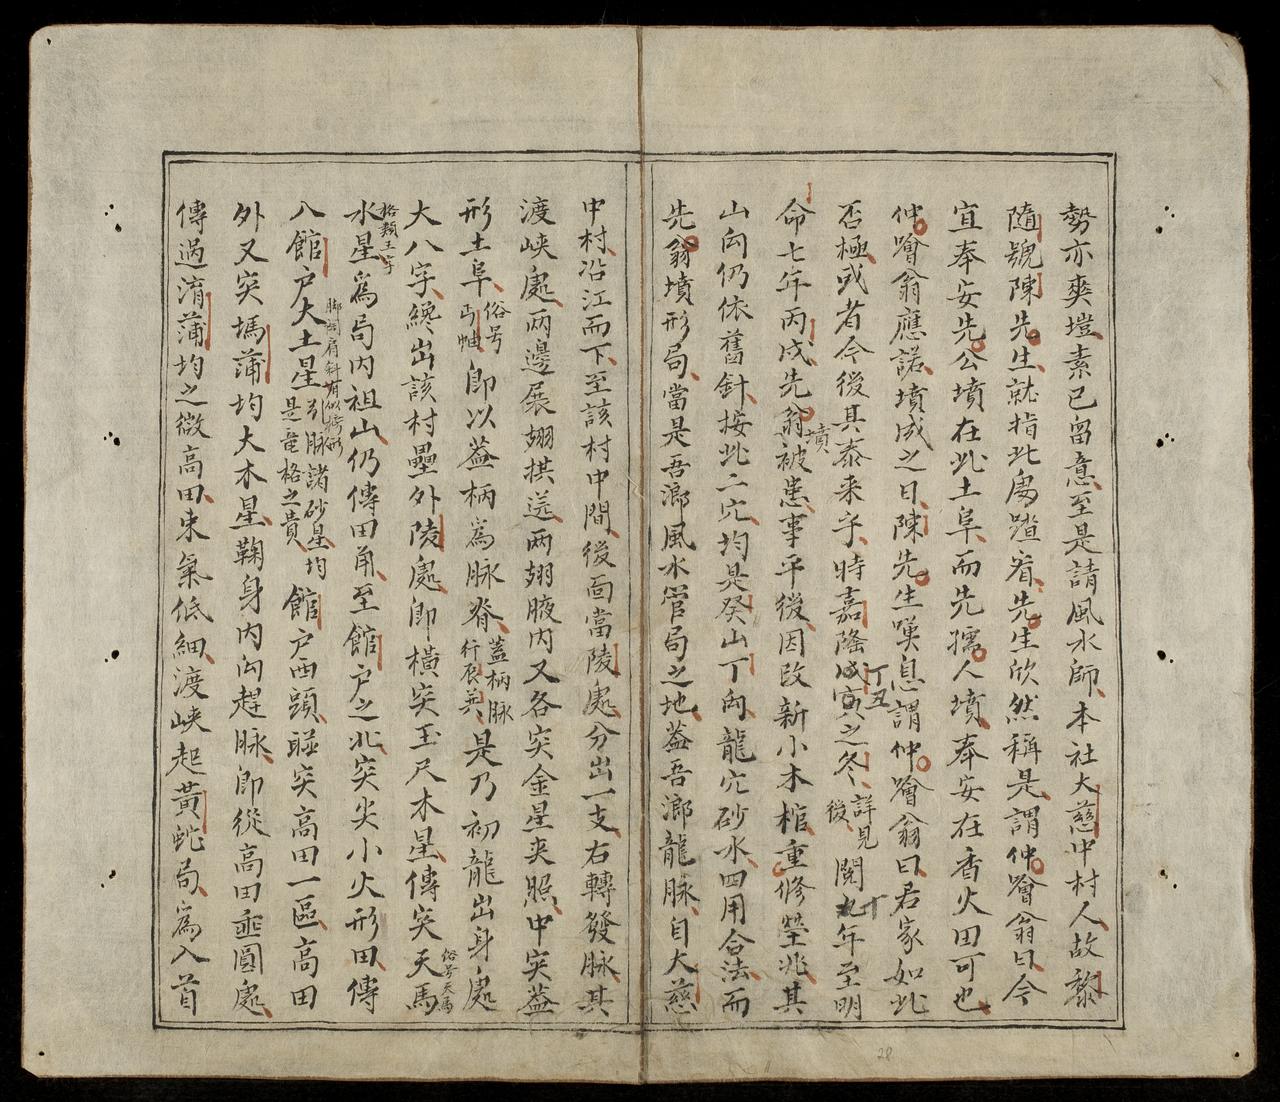 勢亦爽塏素已留意至是請風水師本社大慈中村人故黎
隨號陳先生就指此處踏看先生欣然稱是謂仲噲翁曰今
宜奉安先公墳在此土阜而先孺人墳奉安在香火田可也
仲噲翁應諾墳成之日陳先生嘆息謂仲噲翁曰君家如此
否極或者今後其泰来乎時嘉隆戊寅之冬詳見後閱九年至明
丁丑
十
命七年丙戌先翁被患事平後因改新小木棺重修塋兆其
墳
山向仍依舊針按此二穴均是癸山丁向龍穴砂水四用合法而
先翁墳形局當是吾瀨風水管局之地蓋吾瀨龍脉自大慈
中村沿江而下至該村中間後面當陵處分出一支右轉發脉其
渡峽處两邊展翅拱送两翅腋内又各突金星夾照中突蓋
形土阜俗号丐岫即以蓋柄為脉脊蓋柄脉行辰巽是乃初龍出身處
大八字纔出該村壘外陵處即橫突玉尺木星傳突天馬俗号天馬
格類王字
水星為局内祖山仍傳田角至館户之北突尖小火形田傳
八館户大土星引脉諸砂星均是竜格之貴館户西頭碰突高田一區高田
外又突塢蒲均大木星鞠身内向趕脉即從高田垂圓處
傳過淯蒲均之微高田束氣低細渡峽起黄蛇局為入首